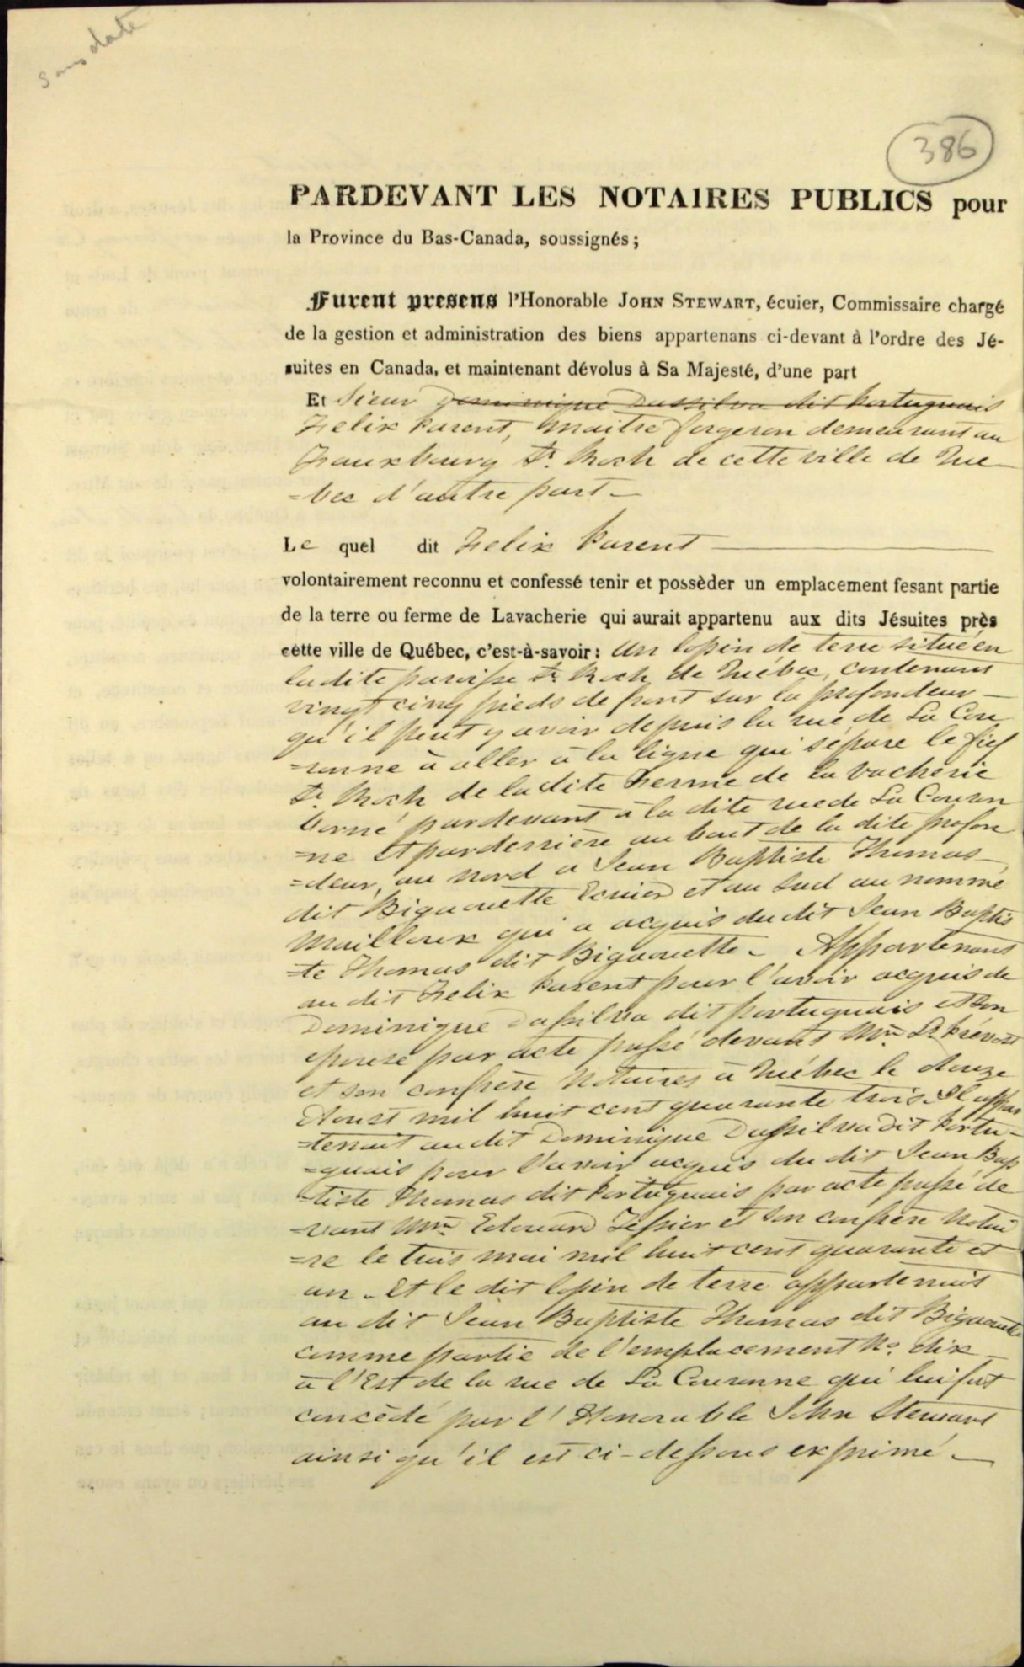 sans date
386
PARDEVANT LES NOTAIRES PUBLICS pour
la Province du Bas-Canada, soussignés;
Furent presens l'Honorable JOHN STEWART, écuier, Commissaire chargé
de la gestion et administration des biens appartenans ci-devant à l'ordre des Jé-
suites en Canada, et maintenant dévolus à Sa Majesté, d'une part
Et Sieur Dominique Dassilva dit Portuguais
Felix Parent, Maitre forgeron demeurant au
Fauxbourg St. Roch de cette ville de Qué
=bec d'autre part_
Le quel dit Felix Parent
volontairement reconnu et confessé tenir et possèder un emplacement fesant partie
de la terre ou ferme de Lavacherie qui aurait appartenu aux dits Jésuites près
cette ville de Québec, c'est-à-savoir: Un lopin de terre situé en
ladite paroisse St. Roch de Québec, contenant
vingt cinq pieds de front sur la profondeur_
qu'il peut y avoir depuis la rue de La Cou
=ronne à aller à la ligne qui sépare le fief
St. Roch de ladite Ferme de la vacherie
borné pardevant à la dite rue de La Couron
=ne et parderrière au bout de la dite profon
=deur, au nord a Jean Baptiste Thomas_
dit Bigaouette Ecuier et au sud au nommé
Mailloux qui a acquis du dit Jean Baptis
=te Thomas dit Bigaouette_ Appartenant
au dit Felix Parent pour l'avoir acquis de
Dominique Dassilva dit portuguais et son
épouse par acte passé devant Mtre. Prevost
et son confrère Notaires à Québec le douze
Aoust mil huit cent quarante trois. Il appar
=tenait audit Dominique Dassilva dit Portu-
=guais pour l'avoir acquis du dit Jean Bap
=tiste Thomas dit Portuguais par acte passé de
=vant Mtre. Edouard Tessier et son confrère Notai
=re le trois mai mil huit cent quarante et
un_ Et le dit lopin de terre appartenait
au dit Jean Baptiste Thomas dit Bigaouette
comme partie de l'emplacement No. dix_
à l'Est de la rue de La Couronne qui lui fut
concédé par l'Honorable John Stewart
ainsi qu'il est ci-dessous exprimé_